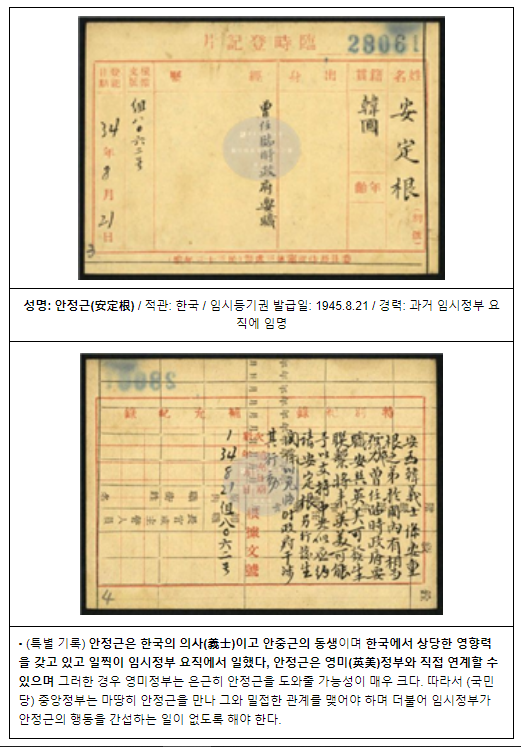 臨時登記片
28061
姓名
安定根
籍貫
韓國
年齡
出身
經歷
曾任臨時政府要職
組八〇六二号
34年8月21日
3
성명: 안정근(安定根) / 적관: 한국 / 임시등기권 발급일: 1945.8.21 / 경력: 과거 임시정부 요
직에 임명
28061
特別紀錄
安為韓義士係安重
根之弟於國內有相當
勢力曾任臨時政府要
職安與英美可發生
聯繫將來英美可能
予以支持中央似應約
請安定根另行發生
關係以免臨時政府干涉
其行動
補充紀錄
根據文號
組八〇六二号
34 8 21
1
4
- (특별 기록) 안정근은 한국의 의사(義士)이고 안중근의 동생이며 한국에서 상당한 영향력
을 갖고 있고 일찍이 임시정부 요직에서 일했다, 안정근은 영미(英美)정부와 직접 연계할 수
있으며 그러한 경우 영미정부는 은근히 안정근을 도와줄 가능성이 매우 크다. 따라서 (국민
당) 중앙정부는 마땅히 안정근을 만나 그와 밀접한 관계를 맺어야 하며 더불어 임시정부가
안정근의 행동을 간섭하는 일이 없도록 해야 한다.